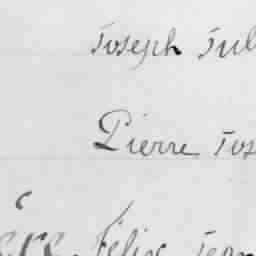 Joseph Jul
Pierre Jos
ère Félix Jean